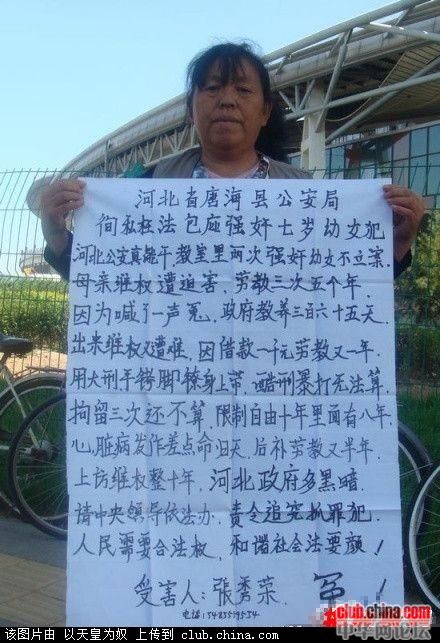 河北省唐海县公安局
徇私枉法包庇强奸七岁幼女犯
河北公安真能干教室里两次强奸幼女不立案.
母亲维权遭迫害.劳教三次五个年.
因为喊了一声冤.政府教养三百六十五天.
出来维权又遭难.因借款一千元劳教又一年.
用大刑手铐脚镣身上带.酷刑暴打无法算.
拘留三次还不算.限制自由十年里面有八年.
心脏病发作差点命归天.后补劳教又半年.
上访维权整十年.河北政府多黑暗.
请中央领导依法办.责令追究执罪犯.
人民需要合法权.和谐社会法要颜!
受害人:張秀荣. 冤!
电话:
club.china.com
中华网论坛
[该图片由 以天皇为奴 上传到 club.china.com]